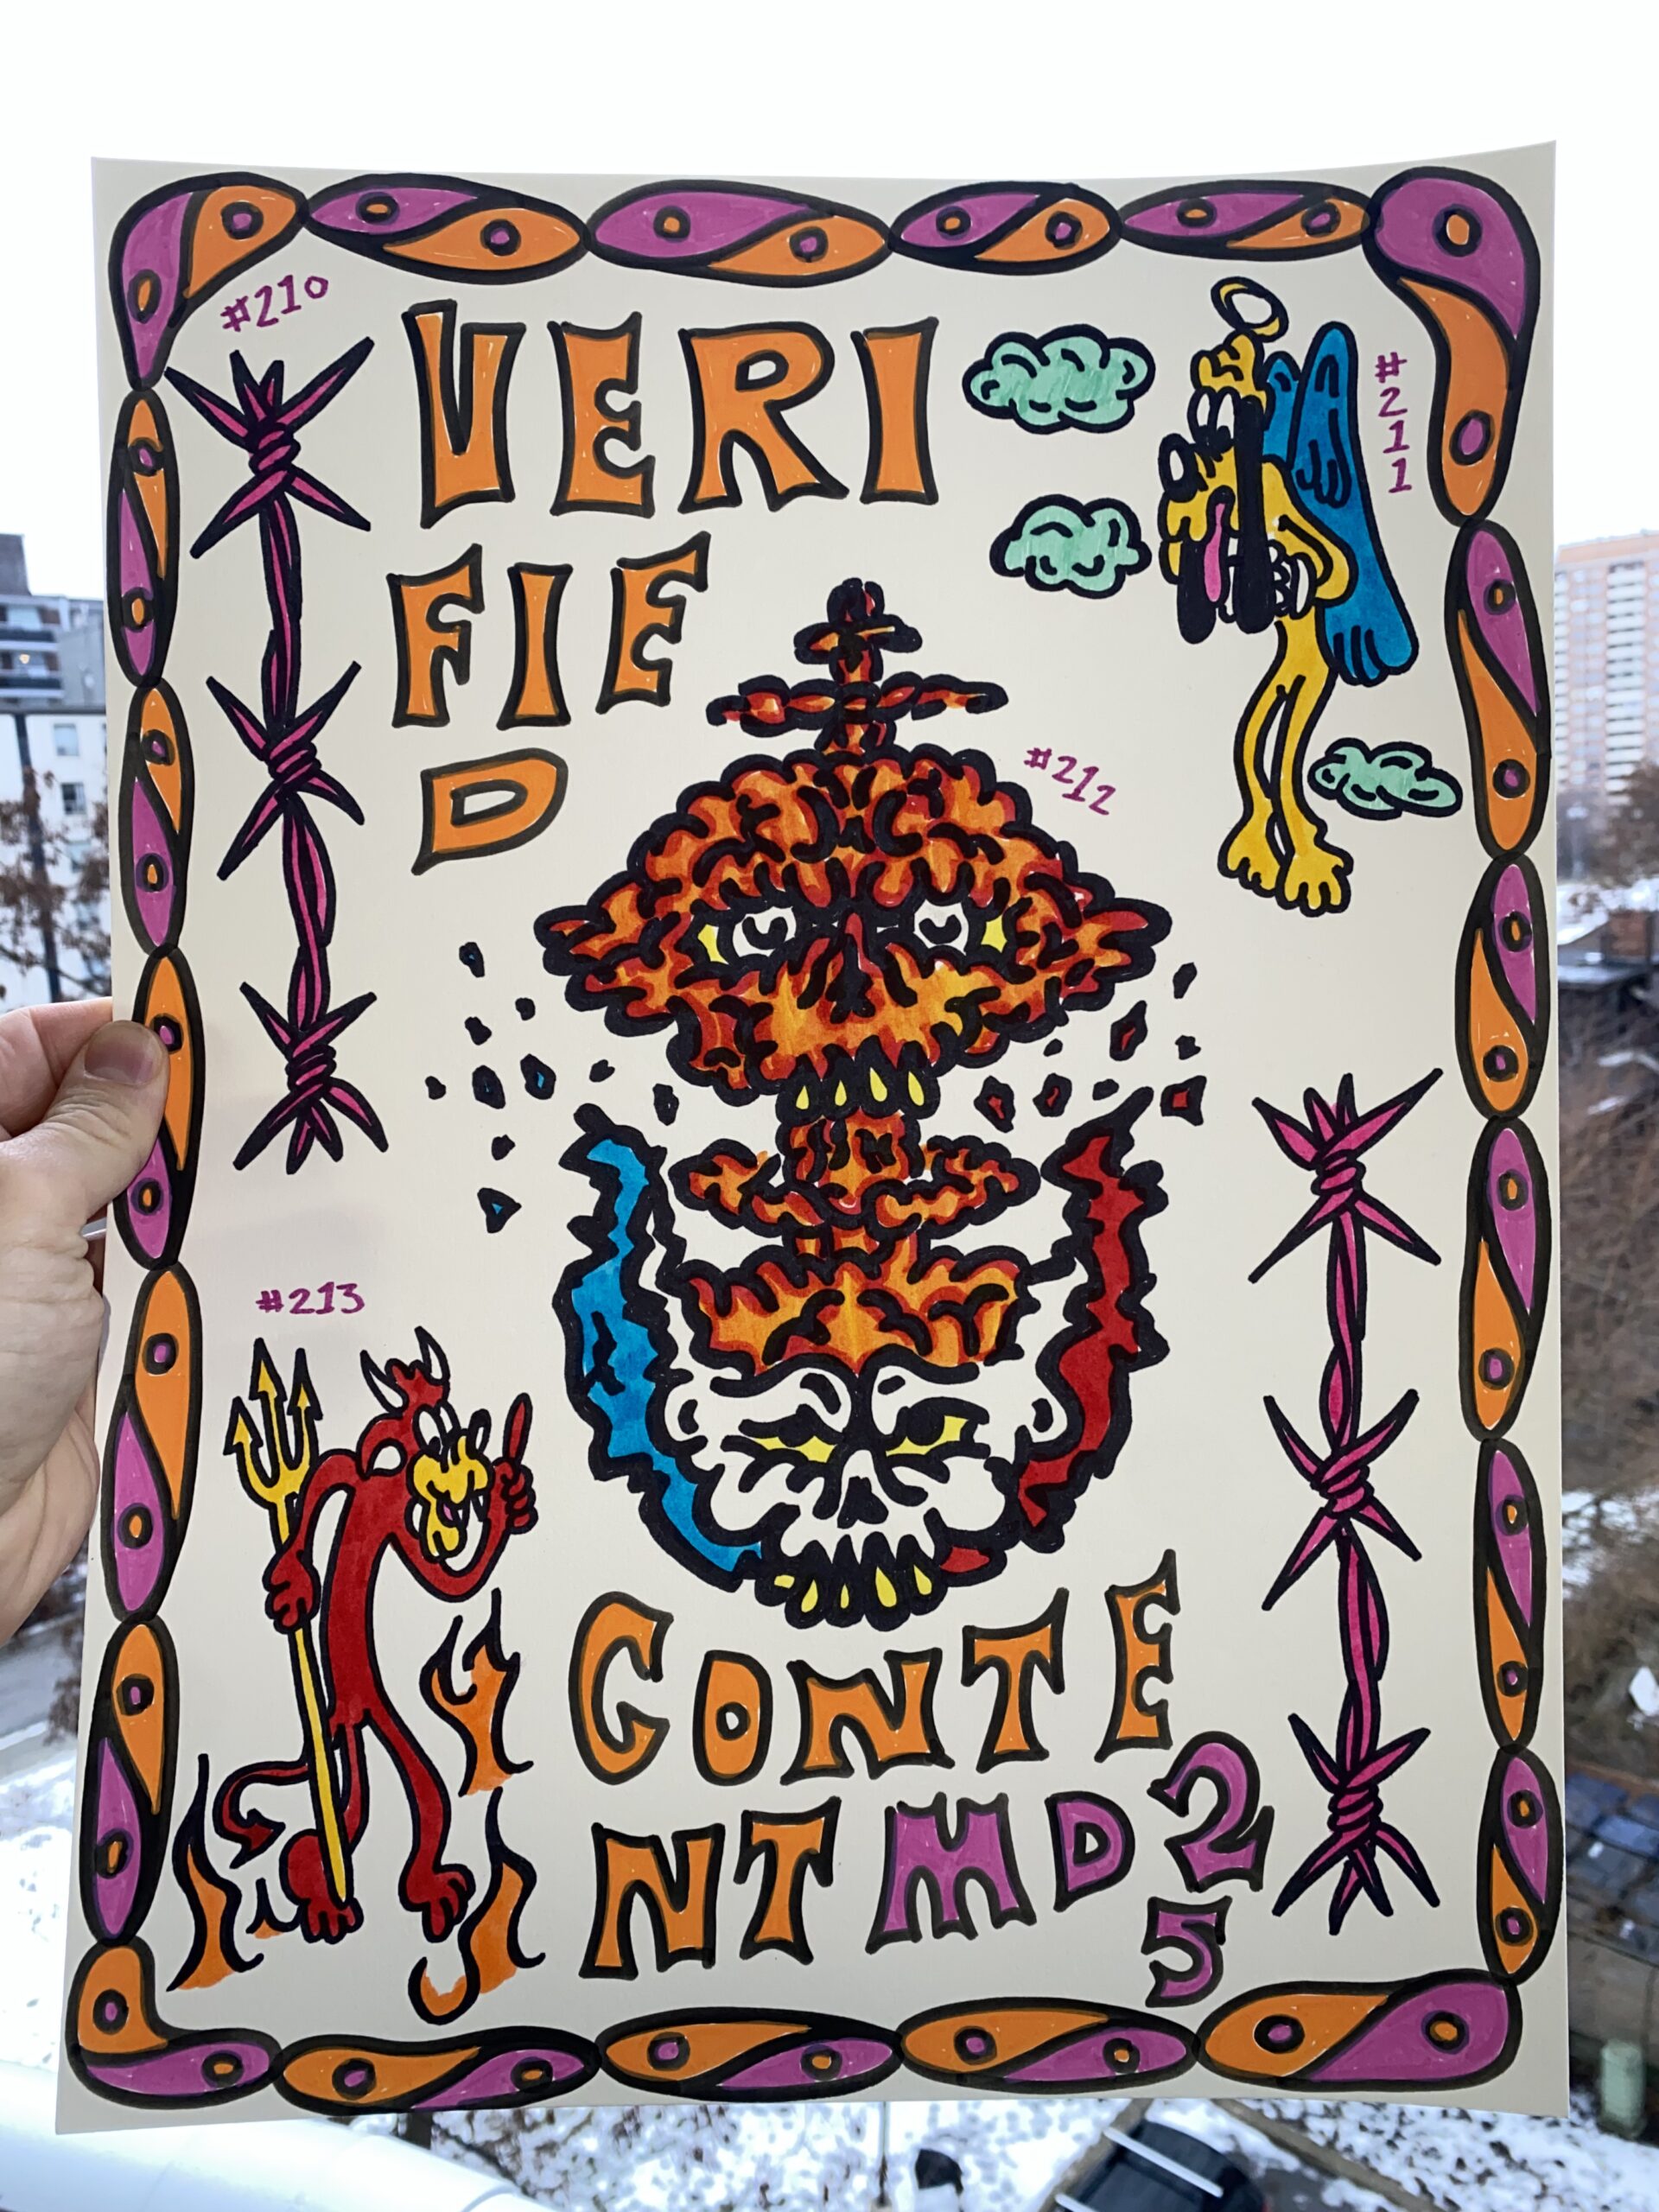 #210
VERI
FIE
D
#211
#212
#213
CONTE
NT MD2
5